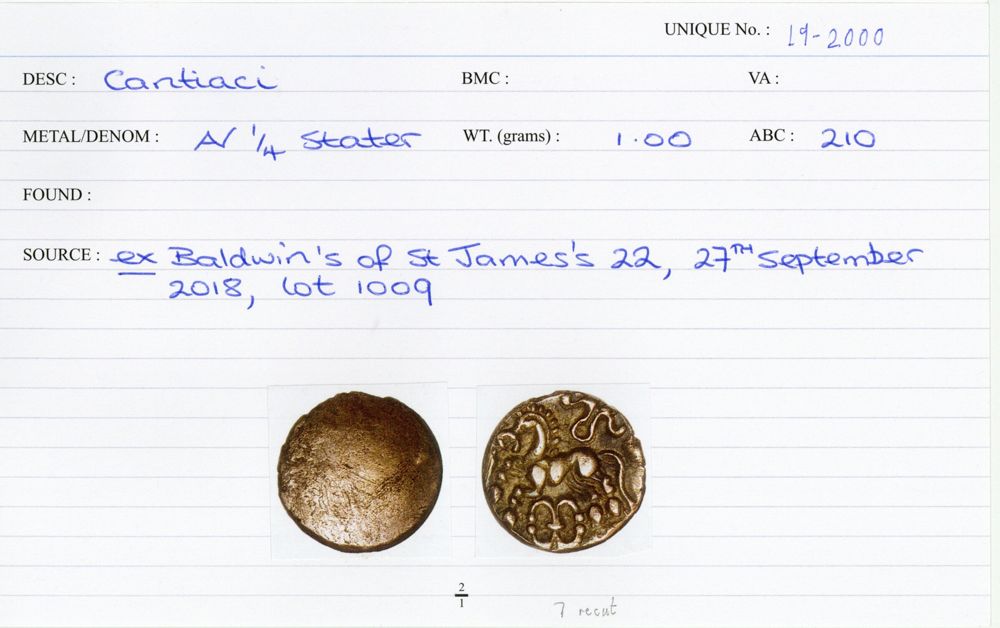 UNIQUE No. : 19-2000
DESC : Cantiaci BMC : VA :
METAL/DENOM : AV 1/4 Stater WT. (grams) : 1.00 ABC : 210
FOUND :
SOURCE : ex Baldwin's of St James's 22, 27TH September
2018, lot 1009
2
1
7 recut